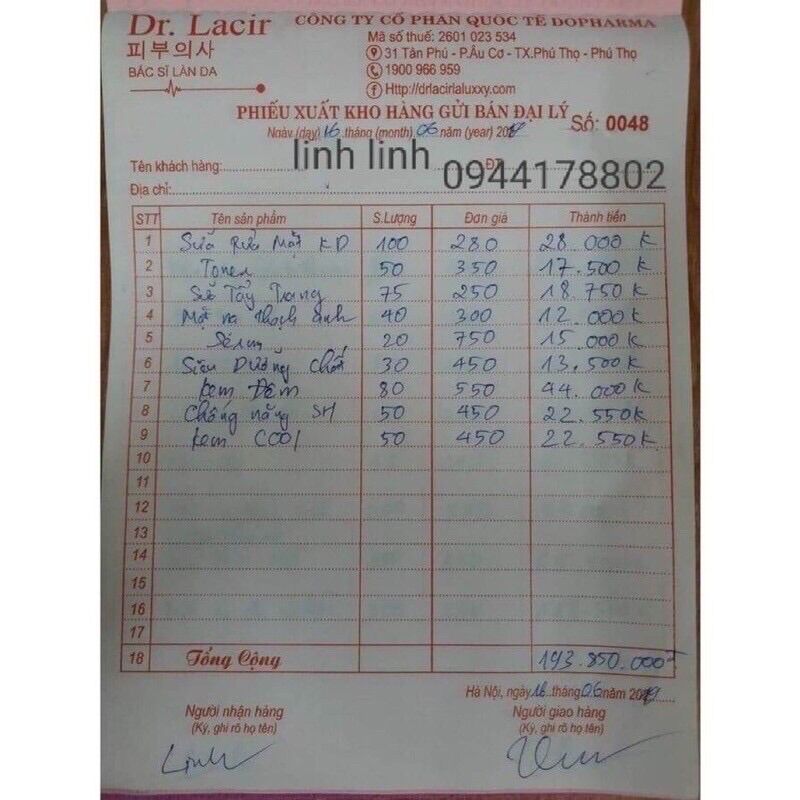 Dr. Lacir
피부의사
BÁC SĨ LÀN DA
CÔNG TY CỔ PHẦN QUỐC TẾ DOPHARMA
Mã số thuế: 2601 023 534
31 Tân Phú - P.Âu Cơ - TX.Phú Thọ - Phú Thọ
1900 966 959
Http://drlacirlaluxxy.com
PHIẾU XUẤT KHO HÀNG GỬI BÁN ĐẠI LÝ
Số: 0048
Ngày (day) 16 tháng (month) 06 năm (year) 20
Tên khách hàng: linh linh ĐT 0944178802
Địa chỉ:
STT Tên sản phẩm S.Lượng Đơn giá Thành tiền
1 Sữa Rửa Mặt KD 100 280 28 000 K
2 Toner 50 350 17.500 K
3 Sữ Tẩy Trang 75 250 18.750 K
4 Mặt nạ thạch anh 40 300 12.000 K
5 Serum 20 750 15.000 K
6 Siêu Dưỡng Chất 30 450 13.500 K
7 Kem Đêm 80 550 44.000 K
8 Chống nắng SH 50 450 22.550 K
9 Kem COOl 50 450 22.550 K
10
11
12
13
14
15
16
17
18 Tổng Cộng 193.850.000
Hà Nội, ngày 16 tháng 06 năm 2019
Người nhận hàng Người giao hàng
(Ký, ghi rõ họ tên) (Ký, ghi rõ họ tên)
Linh